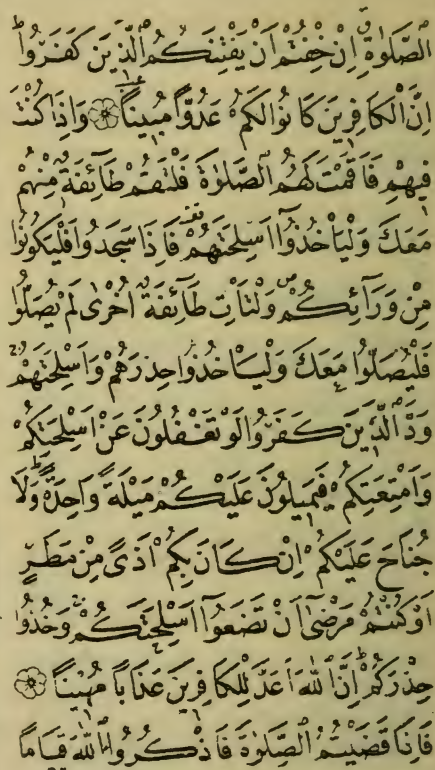 ٱلصَّلٰوةِ اِنْ خِفْتُمْ اَنْ يَفْتِنَكُمُ ٱلَّذِينَ كَفَرُوا
اِنَّ ٱلْكَافِرِينَ كَانُوا لَكُمْ عَدُوًّا مُبِينًا ۝ وَاِذَا كُنْتَ
فِيهِمْ فَاَقَمْتَ لَهُمُ ٱلصَّلٰوةَ فَلْتَقُمْ طَآئِفَةٌ مِنْهُمْ
مَعَكَ وَلْيَأْخُذُوٓا اَسْلِحَتَهُمْ فَاِذَا سَجَدُوا فَلْيَكُونُوا
مِنْ وَرَآئِكُمْ وَلْتَأْتِ طَآئِفَةٌ اُخْرٰى لَمْ يُصَلُّوا
فَلْيُصَلُّوا مَعَكَ وَلْيَأْخُذُوا حِذْرَهُمْ وَاَسْلِحَتَهُمْ
وَدَّ ٱلَّذِينَ كَفَرُوا لَوْ تَغْفُلُونَ عَنْ اَسْلِحَتِكُمْ
وَاَمْتِعَتِكُمْ فَيَمِيلُونَ عَلَيْكُمْ مَيْلَةً وَاحِدَةً وَلَا
جُنَاحَ عَلَيْكُمْ اِنْ كَانَ بِكُمْ اَذًى مِنْ مَطَرٍ
اَوْ كُنْتُمْ مَرْضٰٓى اَنْ تَضَعُوٓا اَسْلِحَتَكُمْ وَخُذُوا
حِذْرَكُمْ اِنَّ ٱللّٰهَ اَعَدَّ لِلْكَافِرِينَ عَذَابًا مُهِينًا ۝
فَاِذَا قَضَيْتُمُ ٱلصَّلٰوةَ فَاذْكُرُوا ٱللّٰهَ قِيَامًا